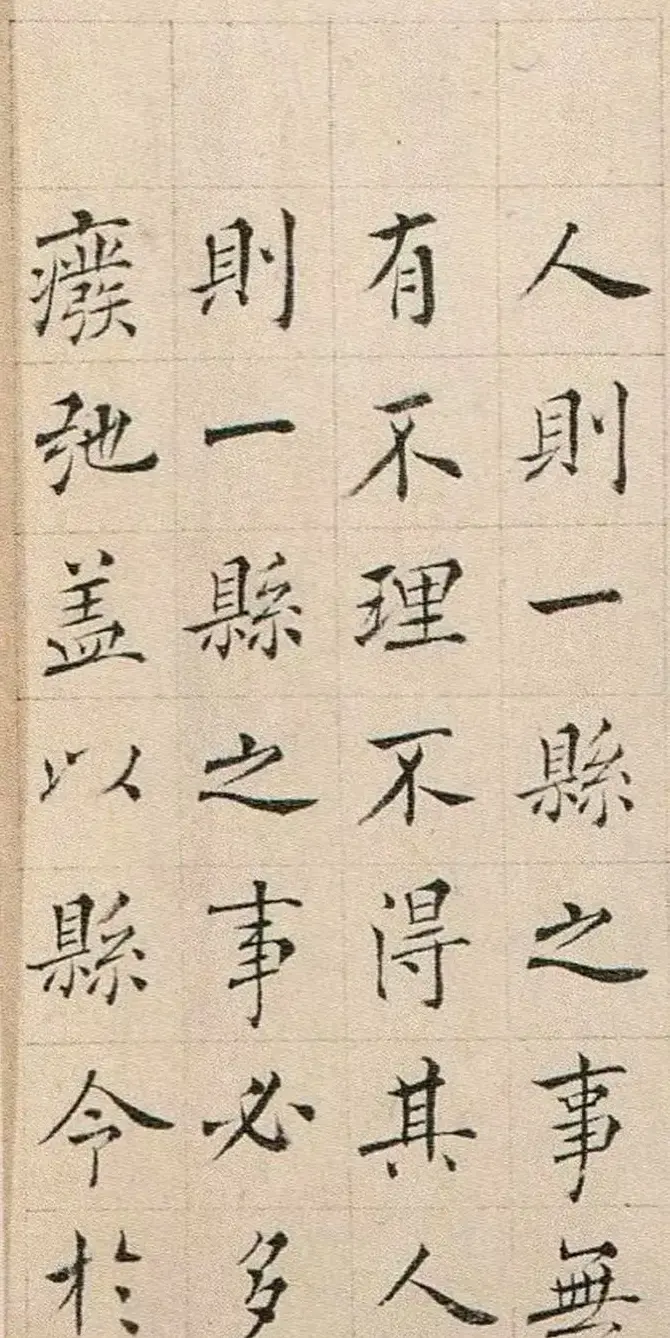 人則一縣之事無
有不理不得其人
則一縣之事必多
癈弛盖以縣令於